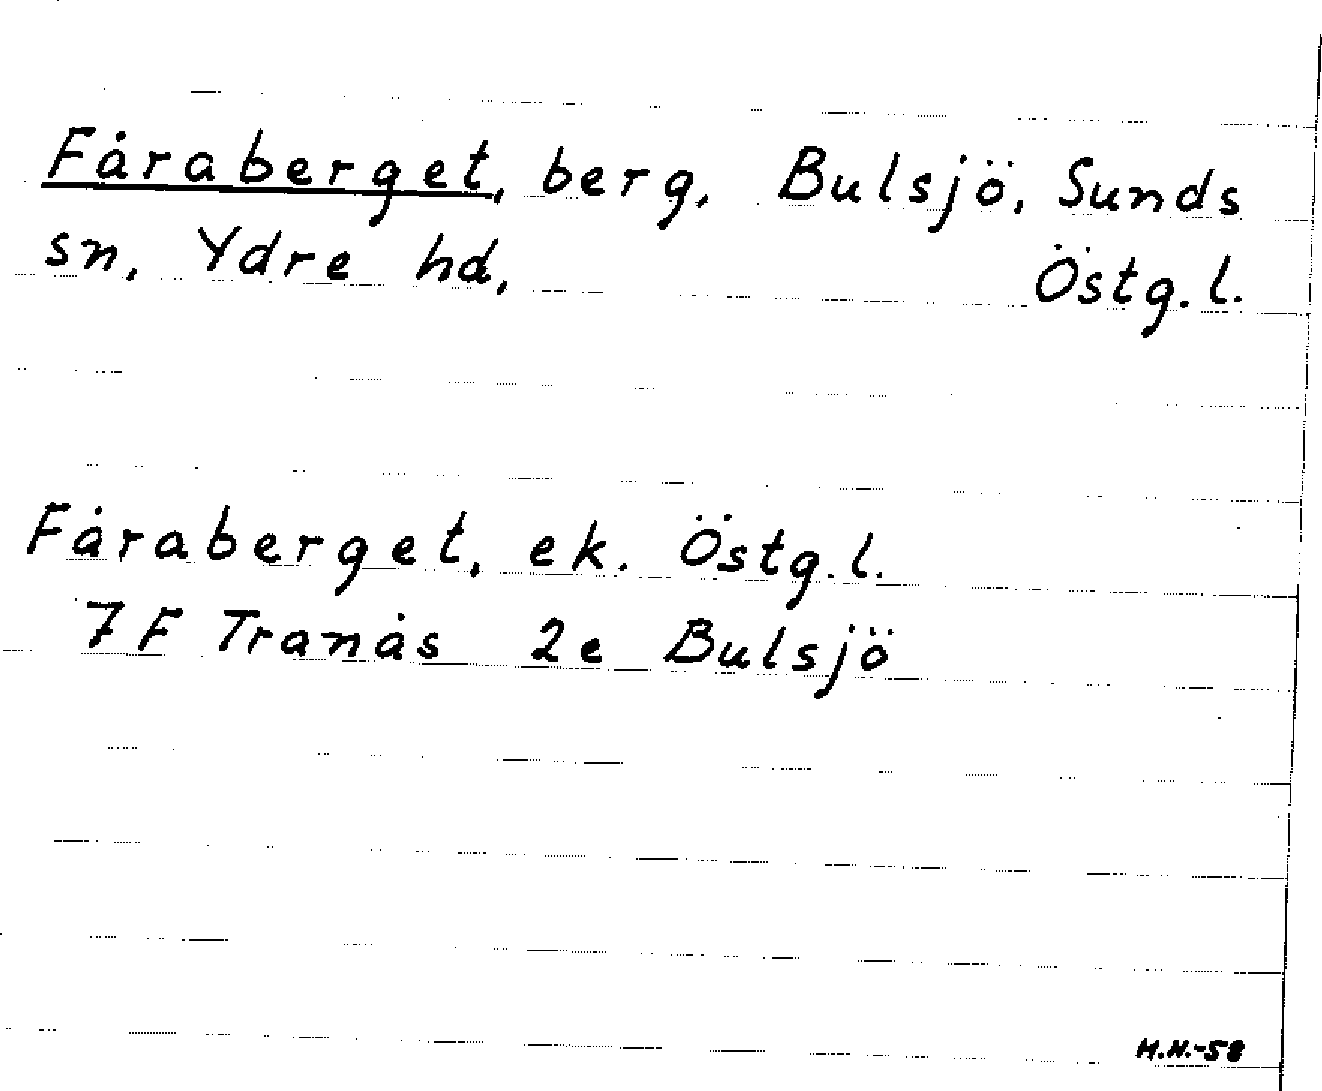 Fåraberget, berg, Bulsjö, Sunds
sn, Ydre hd, Östg. l.
Fåraberget, ek. Östg. l.
7 F Tranås 2e Bulsjö
H.N.-58